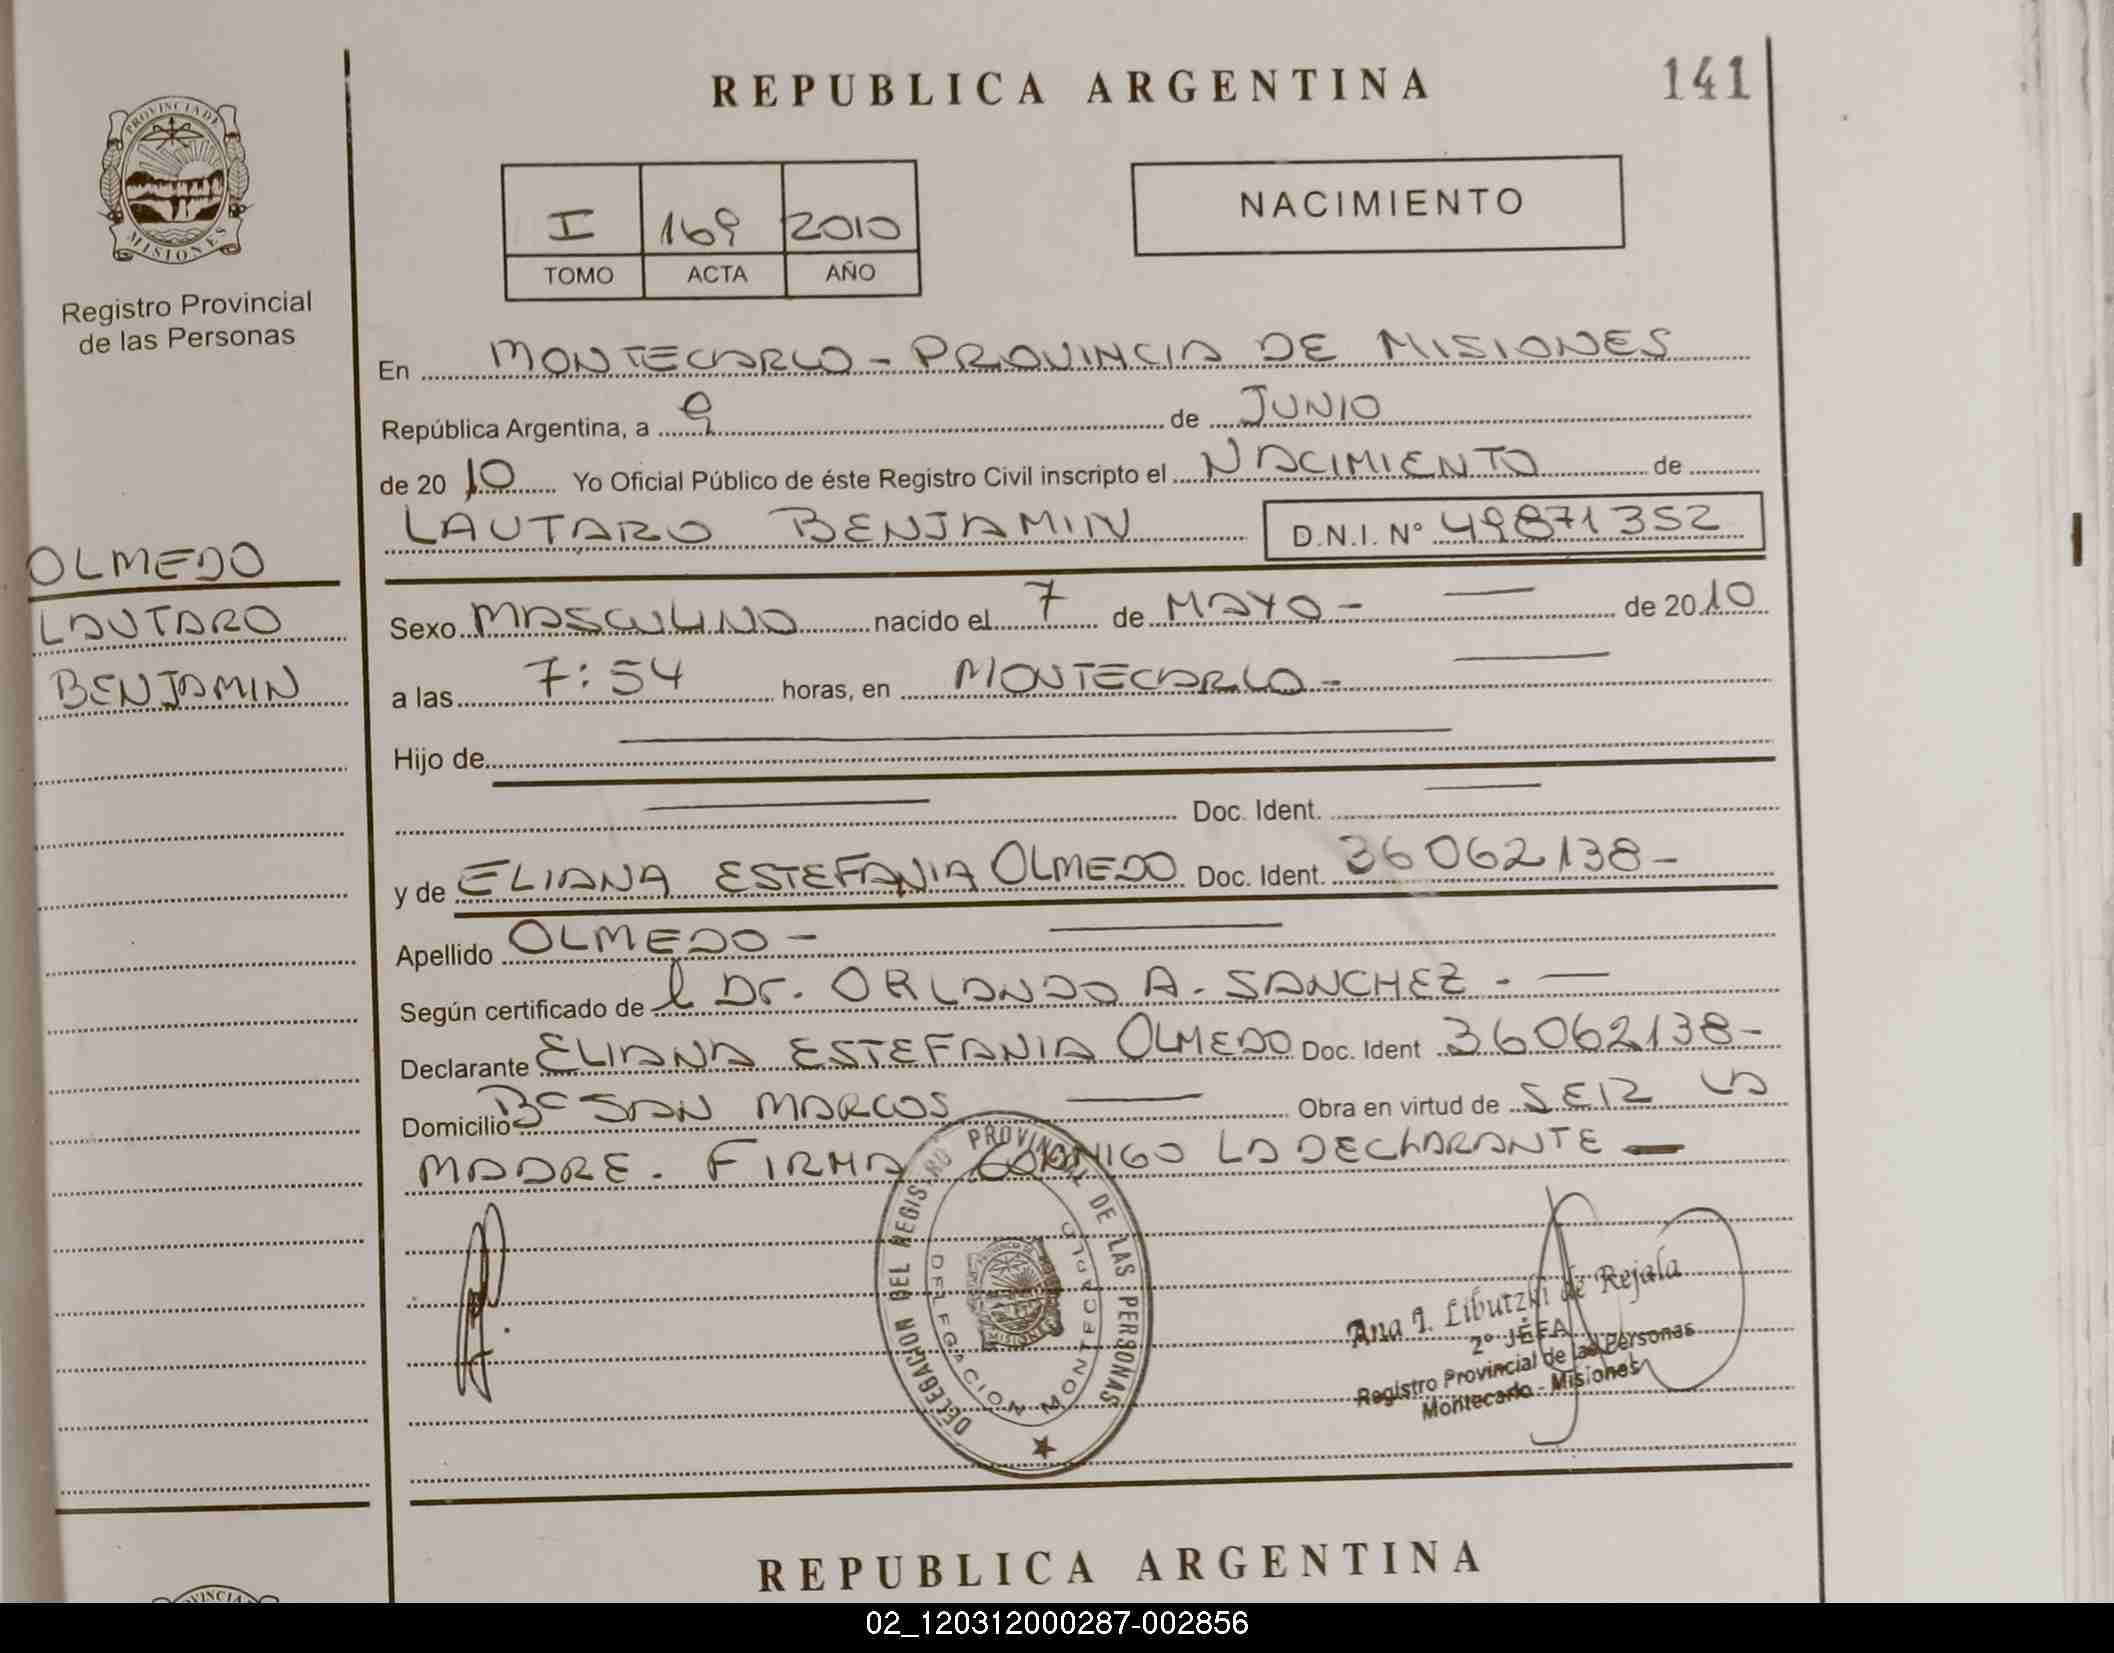 REPUBLICA ARGENTINA
141
PROVINCIA DE MISIONES
Registro Provincial
de las Personas
I 169 2010
TOMO ACTA AÑO
NACIMIENTO
En MONTECARLO - PROVINCIA DE MISIONES
República Argentina, a 9 de JUNIO
de 20 10 Yo Oficial Público de éste Registro Civil inscripto el NACIMIENTO de
LAUTARO BENJAMIN D.N.I. Nº 49871352
OLMEDO
LAUTARO
BENJAMIN
Sexo MASCULINO nacido el 7 de MAYO - de 20 10
a las 7:54 horas, en MONTECARLO -
Hijo de
Doc. Ident.
y de ELIANA ESTEFANIA OLMEDO Doc. Ident. 36062138 -
Apellido OLMEDO -
Según certificado de l Dr. ORLANDO A. SANCHEZ -
Declarante ELIANA ESTEFANIA OLMEDO Doc. Ident 36062138 -
Domicilio Bº SAN MARCOS Obra en virtud de SER LA
MADRE. FIRMA CONMIGO LA DECLARANTE
DELEGACION DEL REGISTRO PROVINCIAL DE LAS PERSONAS
DELEGACION MONTECARLO
MISIONES
Ana I. Libutzki de Rejala
2º JEFA
Registro Provincial de las Personas
Montecarlo - Misiones
REPUBLICA ARGENTINA
02_120312000287-002856